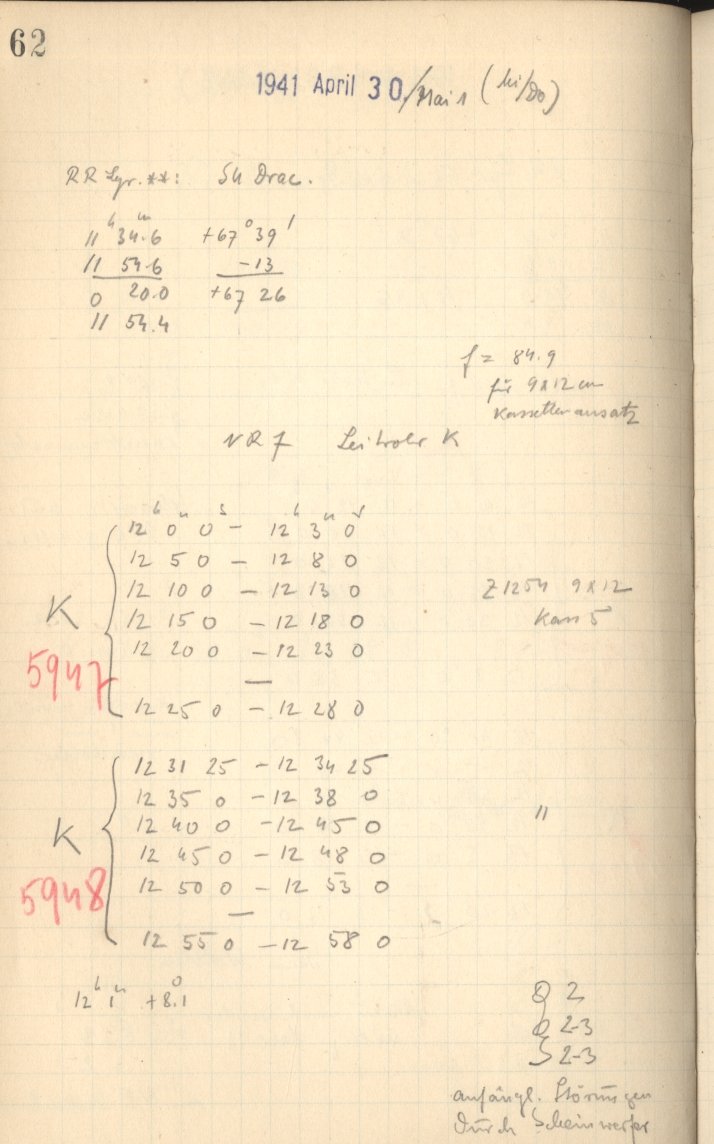 62
1941 April 30/Mai 1 (Mi/Do)
RR Lyr. **: SU Drac.
11ʰ 34ᵐ.6 +67° 39'
11 54.6 -13
0 20.0 +67 26
11 54.4
f = 84.9
für 9x12 cm
Kassettenansatz
Leitrohr K
12ʰ 0ᵐ 0ˢ - 12ʰ 3ᵐ 0ˢ
12 5 0 - 12 8 0
12 10 0 - 12 13 0
K
12 15 0 - 12 18 0
12 20 0 - 12 23 0
5947
—
12 25 0 - 12 28 0
Z 1254 9x12
Kass 5
12 31 25 - 12 34 25
12 35 0 - 12 38 0
12 40 0 - 12 45 0
K
12 45 0 - 12 48 0
12 50 0 - 12 53 0
5948
—
12 55 0 - 12 58 0
"
12ʰ 1ᵐ +8.°1
2
2-3
S 2-3
anfängl. Störungen
durch Scheinwerfer